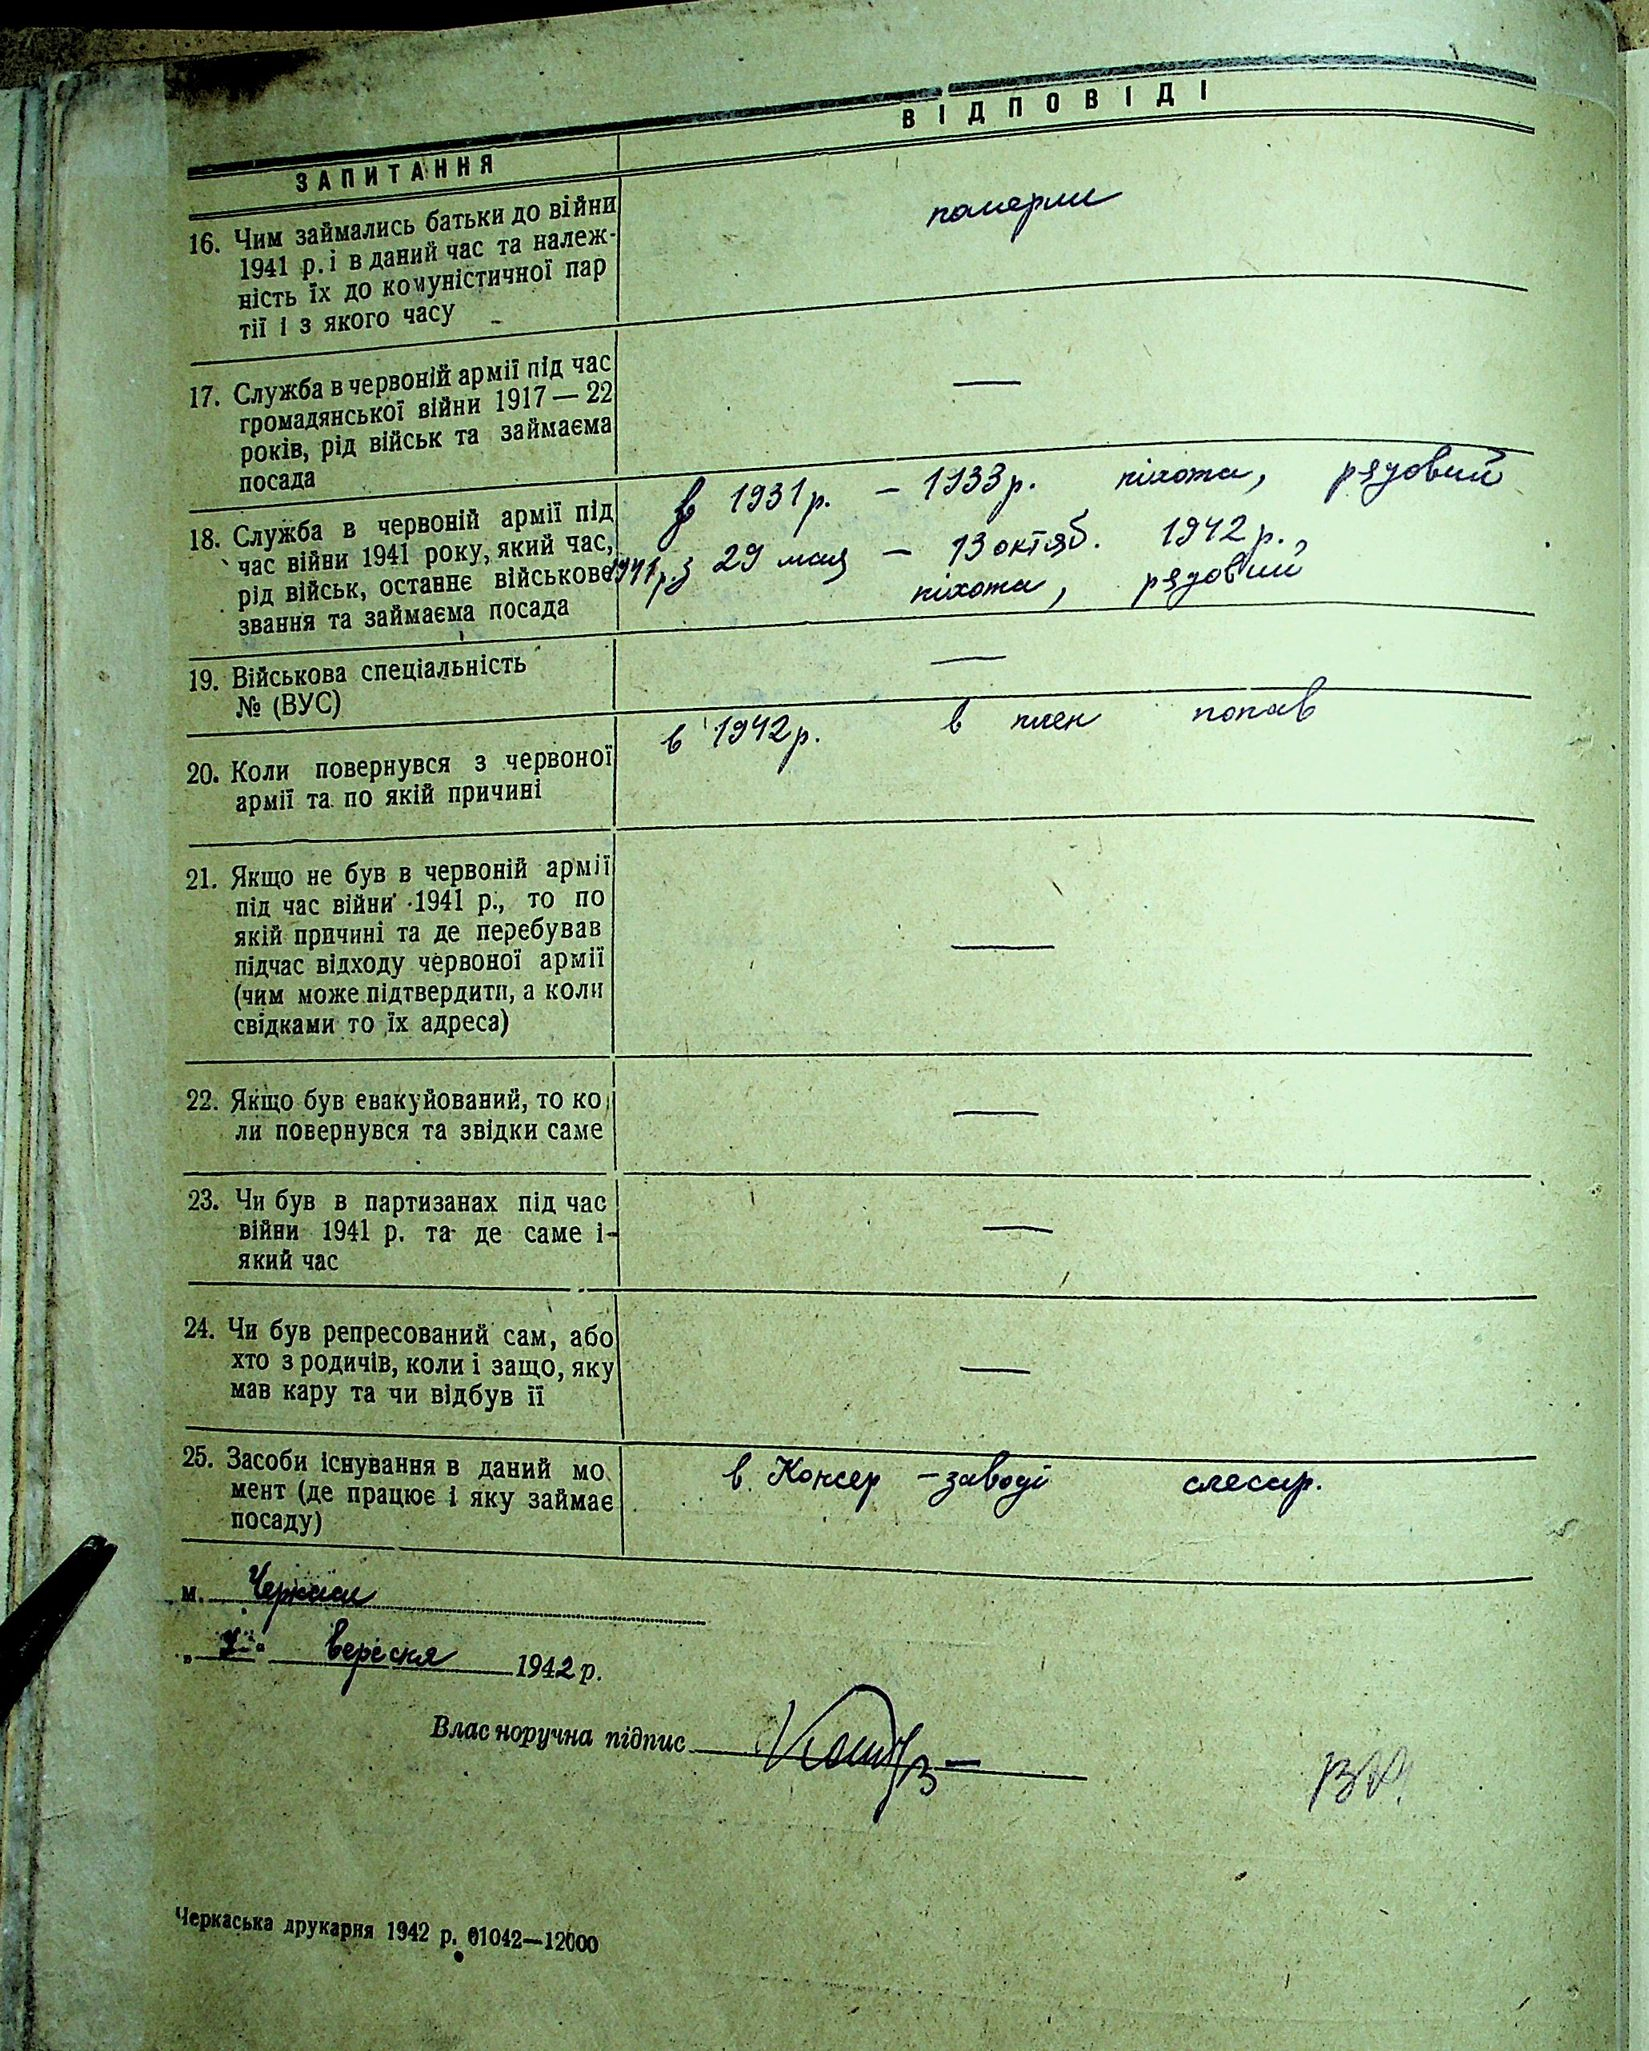 ЗАПИТАННЯ
ВІДПОВІДІ
16. Чим займались батьки до війни
1941 р. і в даний час та належ-
ність їх до комуністичної пар
тії і з якого часу
померли
17. Служба в червоній армії під час
громадянської війни 1917—22
років, рід військ та займаєма
посада
—
18. Служба в червоній армії під
час війни 1941 року, який час,
рід військ, останнє військове
звання та займаєма посада
в 1931р. – 1933р. піхота, рядовий
1941р. з 29 мая – 13 октяб. 1942р.,
піхота, рядовий
19. Військова спеціальність
№ (ВУС)
—
20. Коли повернувся з червоної
армії та по якій причині
в 1942р. в плен попав
21. Якщо не був в червоній армії
під час війни 1941 р., то по
якій причині та де перебував
підчас відходу червоної армії
(чим може підтвердити, а коли
свідками то їх адреса)
—
22. Якщо був евакуйований, то ко
ли повернувся та звідки саме
—
23. Чи був в партизанах під час
війни 1941 р. та де саме і-
який час
—
24. Чи був репресований сам, або
хто з родичів, коли і защо, яку
мав кару та чи відбув її
—
25. Засоби існування в даний мо
мент (де працює і яку займає
посаду)
в. Консер – заводі слесар.
м. Черкаси
вересня 1942 р.
Власноручна підпис
Черкаська друкарня 1942 р. 01042—12000